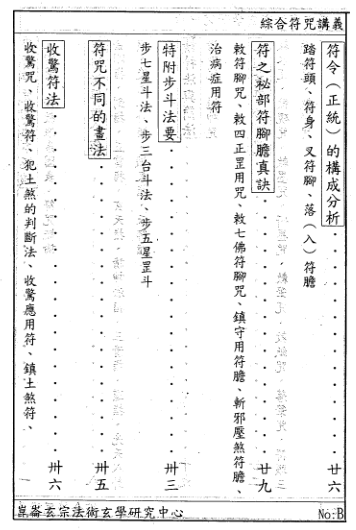 綜合符咒講義
符令(正統)的構成分析············廿六
踏符頭、符身、叉符腳、落(入)符膽
符之秘部符腳膽真訣············廿九
敕符腳咒、敕四正罡用咒、敕七佛符腳咒、鎮守用符膽、斬邪壓煞符膽、
治病症用符
特附步斗法要············卅三
步七星斗法、步三台斗法、步五星罡斗
符咒不同的畫法············卅五
收驚符法············卅六
收驚咒、收驚符、犯土煞的判斷法、收驚應用符、鎮土煞符、
崑崙玄宗法術玄學研究中心
No:B